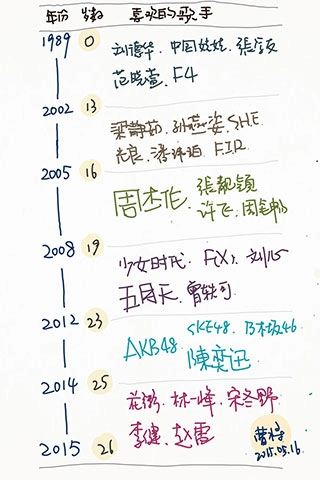 年份 岁数 喜欢的歌手
1989 0
刘德华．中国娃娃．張信哲
范晓萱．F4
2002 13
梁静茹．孙燕姿．SHE
光良．潘玮柏．F.I.R
2005 16
周杰伦．張靚穎
许飞．周笔畅
2008 19
少女时代．F(X)．刘心
五月天．曾轶可
2012 23
SKE48．乃木坂46
AKB48 陳奕迅
2014 25
花粥．林一峰．宋冬野
李健．赵雷
2015 26
2015.05.16